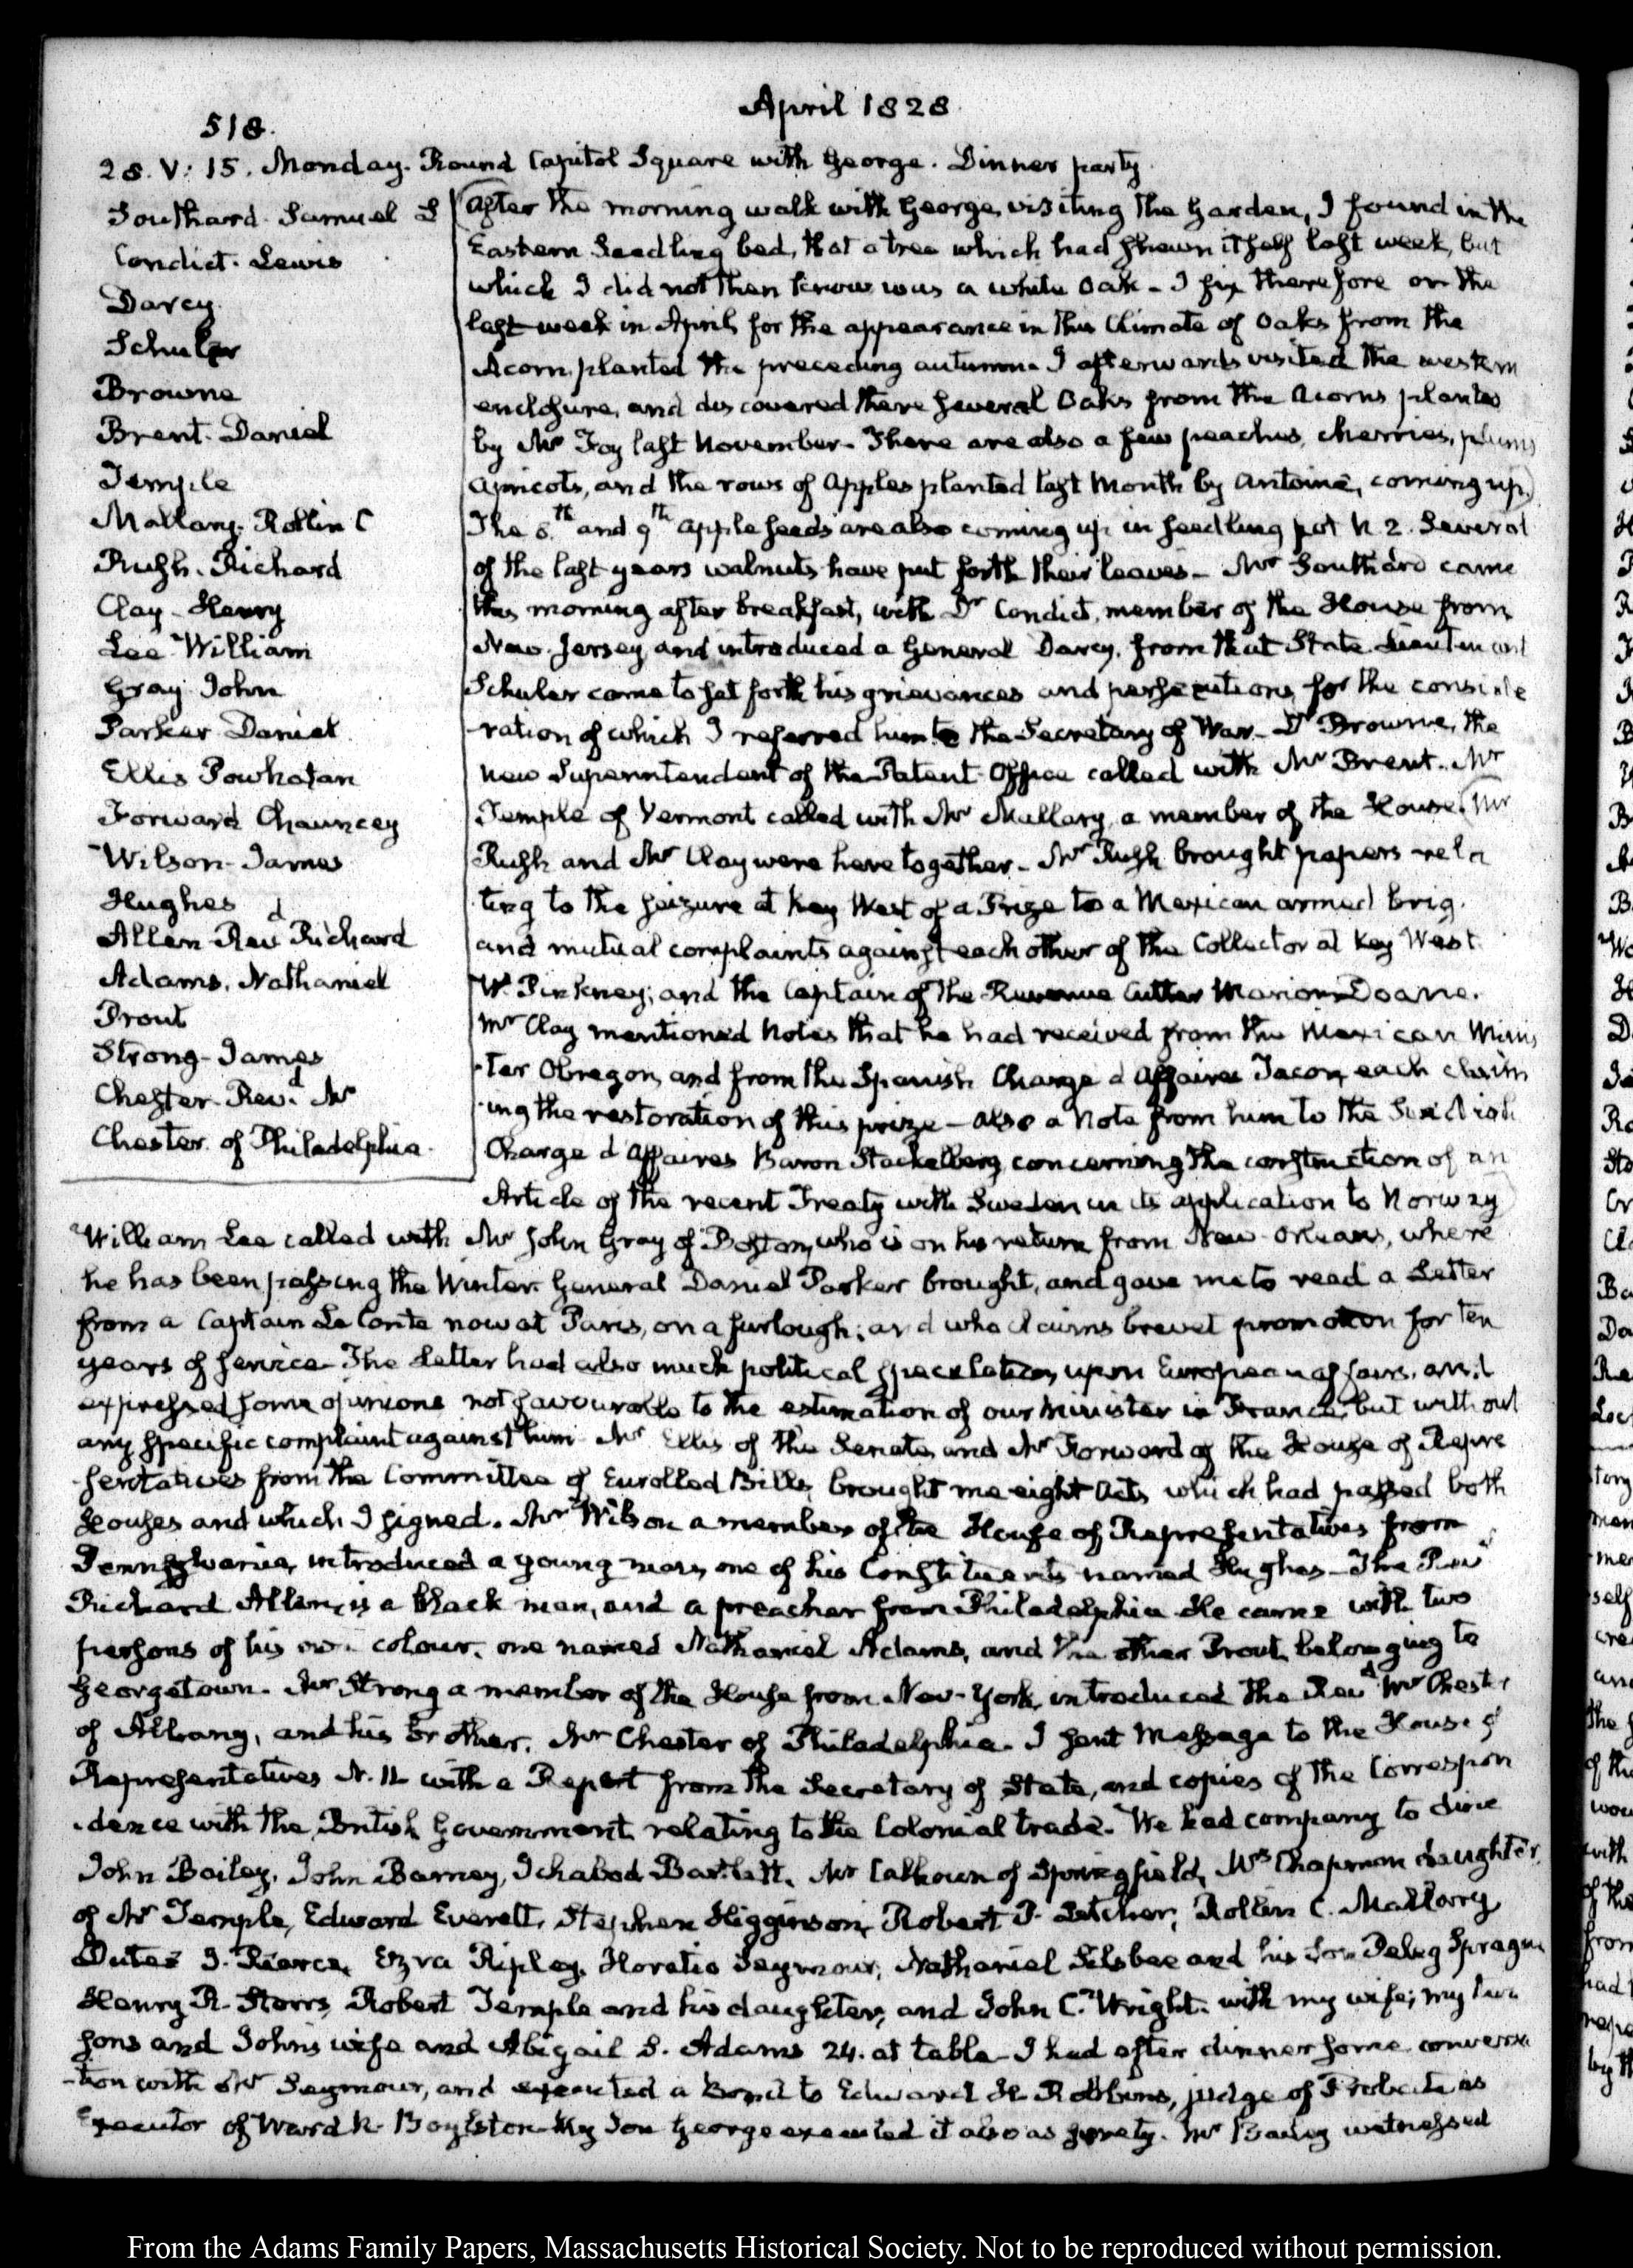 April 1828
518.
28. V: 15. Monday. Round Capitol Square with George. Dinner party.
Southard. Samuel L
Condict. Lewis
Darcy.
Schuler
Browne
Brent. Daniel
Temple
Mallary. Rollin C
Rush. Richard
Clay. Henry
Lee William
Gray John
Parker Daniel
Ellis Powhatan
Forward Chauncey
Wilson James
Hughes
Allen Revd Richard
Adams. Nathaniel
Prout
Strong. James
Chester. Revd. Mr
Chester of Philadelphia.
(After the morning walk with George, visiting the Garden, I found in the
Eastern Seedling bed, that a tree which had shewn itself last week, but
which I did not then know was a white Oak – I fix therefore on the
last week in April, for the appearance in this Climate of Oaks from the
Acorn, planted the preceding autumn. I afterwards visited the western
enclosure, and discovered there several Oaks from the Acorns planted
by Mr Foy last November. There are also a few peaches, cherries, plums
apricots, and the rows of Apples planted last Month by Antoine, coming up)
The 8th and 9th apple seeds are also coming up in seedling pot N. 2. Several
of the last years walnuts have put forth their leaves – Mr Southard came
this morning after breakfast, with Dr Condict, member of the House from
New Jersey, and introduced a General Darcy, from that State. Lieutenant
Schuler came to set forth his grievances and persecutions, for the conside
-ration of which I referred him to the Secretary of War – Dr Browne, the
new Superintendent of the Patent Office called with Mr Brent. Mr
Temple of Vermont called with Mr Mallary, a member of the House. (Mr
Rush and Mr Clay were here together. – Mr Rush brought papers rela
-ting to the seizure at Key West of a Prize to a Mexican armed brig.
and mutual complaints against each other of the Collector at Key West
W. Pinkney; and the Captain of the Revenue Cutter Marion Doane.
Mr Clay mentioned Notes that he had received from the Mexican Minis
-ter Obregon, and from the Spanish Charge d'Affaires Tacon, each claim
-ing the restoration of this prize – also a Note from him to the Swedish
Charge d'Affaires Baron Stackelberg, concerning the construction of an
Article of the recent Treaty with Sweden in its application to Norway)
William Lee called with Mr John Gray of Boston, who is on his return from New-Orleans, where
he has been passing the Winter. General Daniel Parker brought, and gave me to read a Letter
from a Captain Le Conte now at Paris, on a furlough; and who claims brevet promotion for ten
years of service. The Letter had also much political speculation, upon European affairs, and
expressed some opinions not favourable to the estimation of our Minister in France, but without
any specific complaint against him. Mr Ellis of the Senate, and Mr Forward of the House of Repre
-sentatives from the Committee of Enrolled Bills, brought me eight Acts which had passed both
Houses and which I signed. Mr Wilson a member of the House of Representatives from
Pennsylvania, introduced a young man, one of his Constituents named Hughes – The Revd
Richard Allen, is a black man, and a preacher from Philadelphia. He came with two
persons of his own colour, one named Nathaniel Adams, and the other Prout, belonging to
Georgetown. Mr Strong a member of the House from New-York, introduced the Revd Mr Chester
of Albany, and his brother, Mr Chester of Philadelphia. I sent Message to the House of
Representatives N. 11 with a Report from the Secretary of State, and copies of the Correspon
-dence with the British Government relating to the Colonial trade. We had company to dine
John Bailey, John Barney, Ichabod Bartlett, Mr Calhoun of Springfield, Mrs Chapman daughter
of Mr Temple, Edward Everett, Stephen Higginson, Robert P. Letcher, Rollin C. Mallary
Dutee J. Pearce, Ezra Ripley, Horatio Seymour, Nathaniel Silsbee and his Son Peleg Sprague
Henry R. Storrs, Robert Temple and his daughter, and John C. Wright. with my wife, my two
sons and John's wife and Abigail S. Adams 24. at table – I had after dinner some conversa
-tion with Mr Seymour, and executed a Bond to Edward H. Robbins, judge of Probate as
Executor of Ward N. Boylston. My Son George executed it also as surety. Mr Bailey witnessed
From the Adams Family Papers, Massachusetts Historical Society. Not to be reproduced without permission.